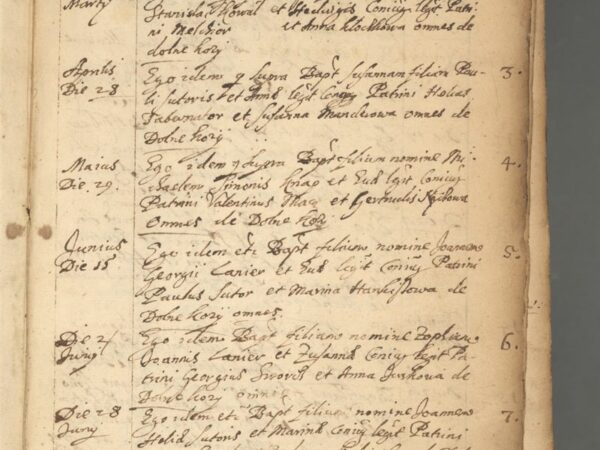 Martÿ
Stanislai Kowal et Hedwigis Coniug legit Patri-
ni Melchior et Anna Klockkowa omnes de
dolne hory
Aprilis Die 28
Ego idem q supra Bapt Susannam filiam Pau- 3.
li sutoris et Annæ legit Coniug Patrini Helias
et Susanna omnes de
Dolne hory
Maius Die 29.
Ego idem q supra Bapt filium nomine Mi- 4.
chaelem Simonis Knap et Evæ legit Coniug
Patrini Valentinus et Gertrudis
omnes de Dolne hory
Junius Die 15
Ego idem etc Bapt filium nomine Joannem 5.
Georgii Lanier et Evæ legit Coniug Patrini
Paulus Sutor et Marina de
Dolne hory omnes.
Die 2
Junÿ
Ego idem Bapt filiam nomine 6.
Joannis Lanier et Zusannæ Coniug legit Pa-
trini Georgius et Anna de
hory omnes
Die 28
Junÿ
Ego idem etc Bapt filium nomine Joannem 7.
Heliæ Sutoris et Marinæ Coniug legit Patrini